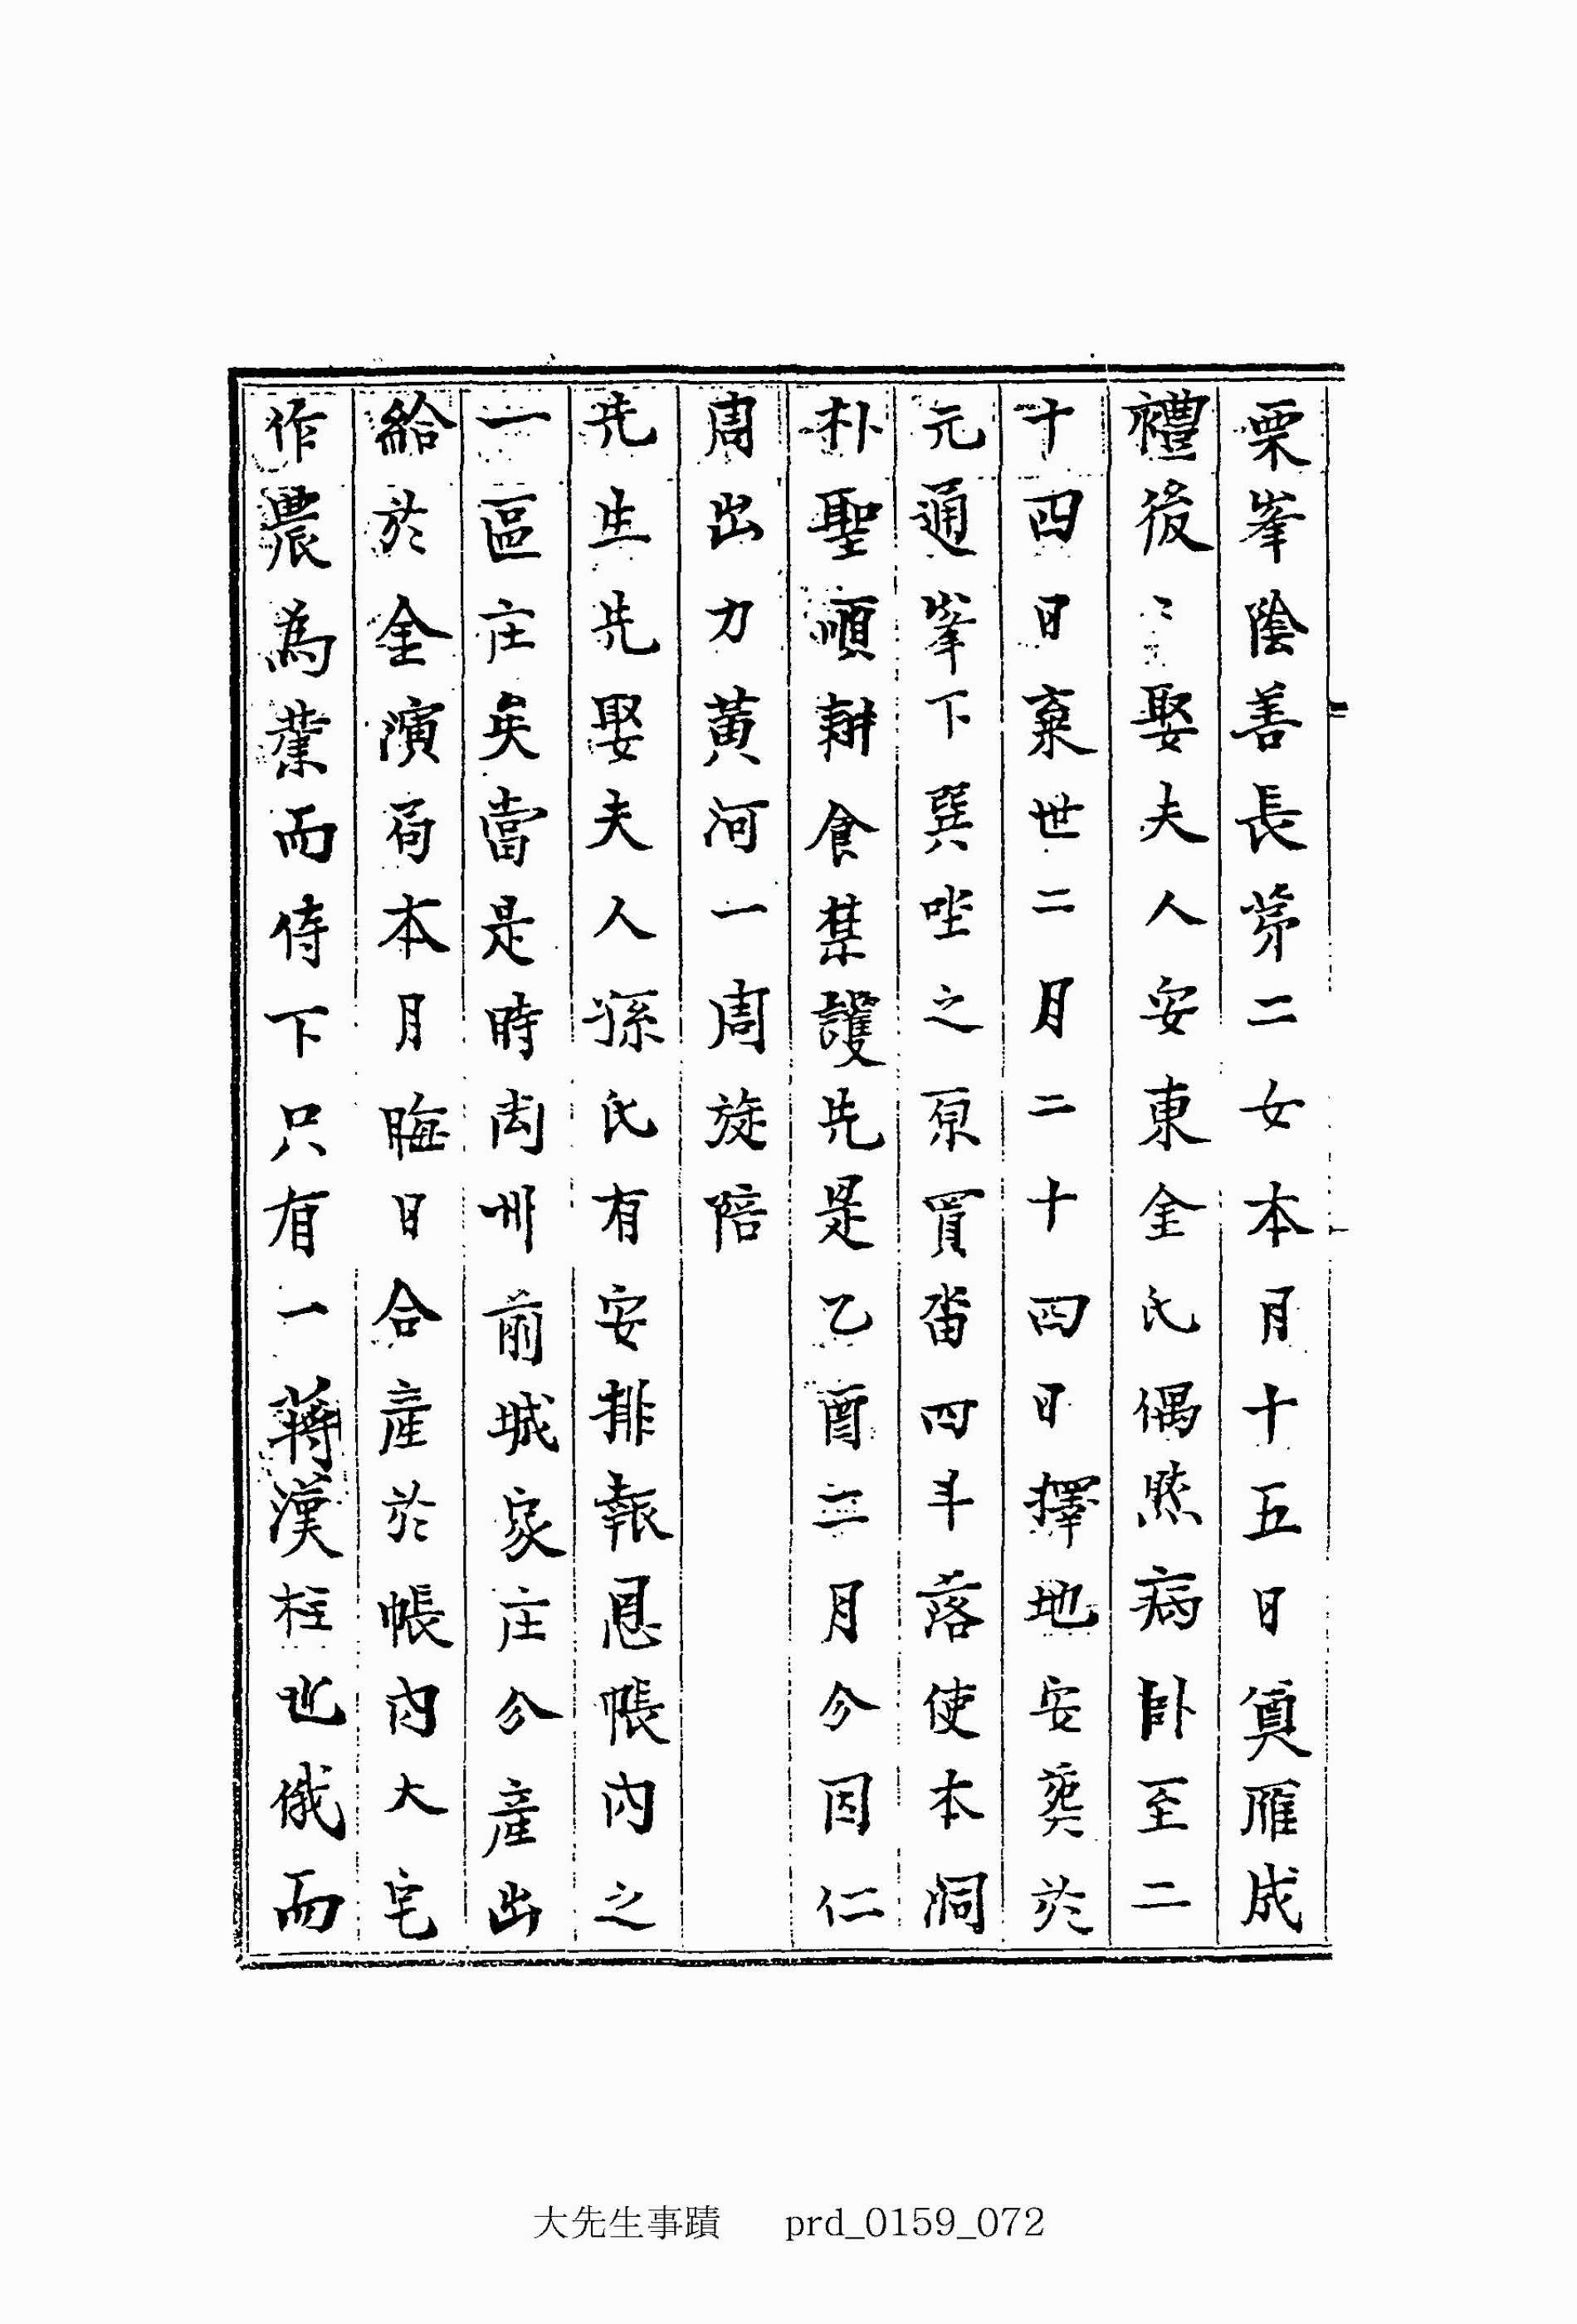 栗峯陰善長茅二女本月十五日奠雁成
禮後〻娶夫人安東金氏偶然病卧至二
十四日棄世二月二十四日擇地安葬於
元通峯下巽坐之原買畓四斗落使本洞
朴聖順耕食禁護先是乙酉三月分因仁
周出力黃河一周旋陪
先生先娶夫人孫氏有安排報恩帳內之
一區庄矣當是時尙州前城家庄分産出
給於金演局本月晦日合産於帳內大宅
作農爲業而侍下只有一蔣漢柱也俄而
大先生事蹟 prd_0159_072